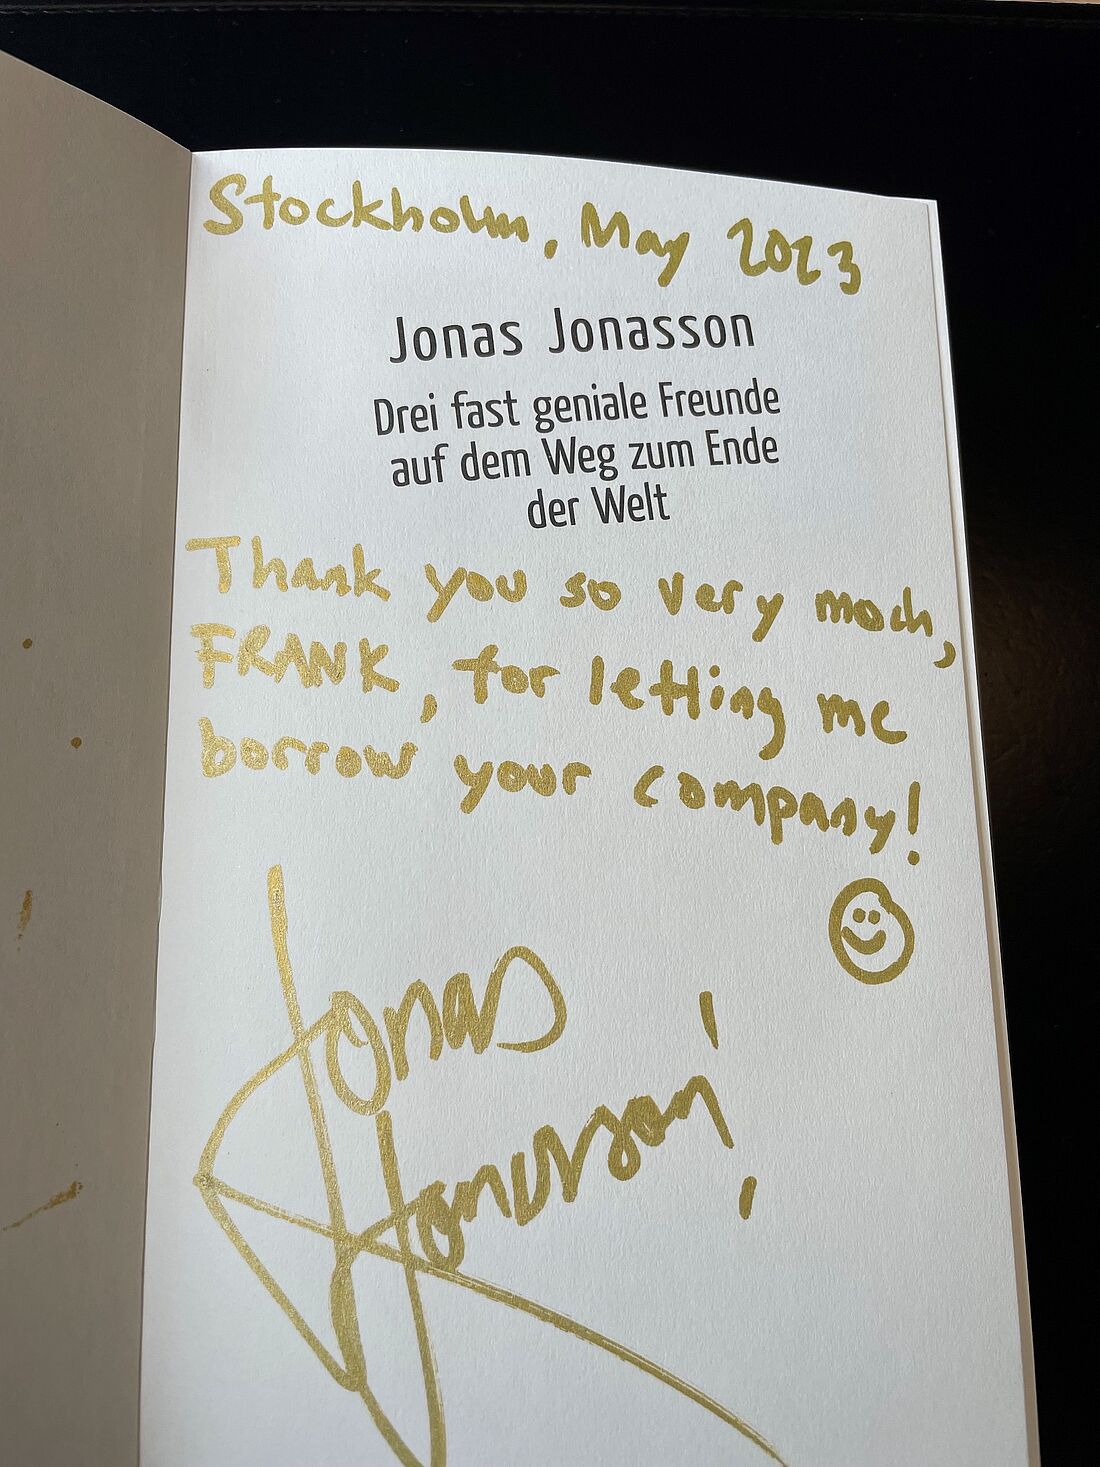 Stockholm, May 2023
Jonas Jonasson
Drei fast geniale Freunde
auf dem Weg zum Ende
der Welt
Thank you so very moch,
FRANK, for letting me
borrow your company!
Jonas
Jonasson